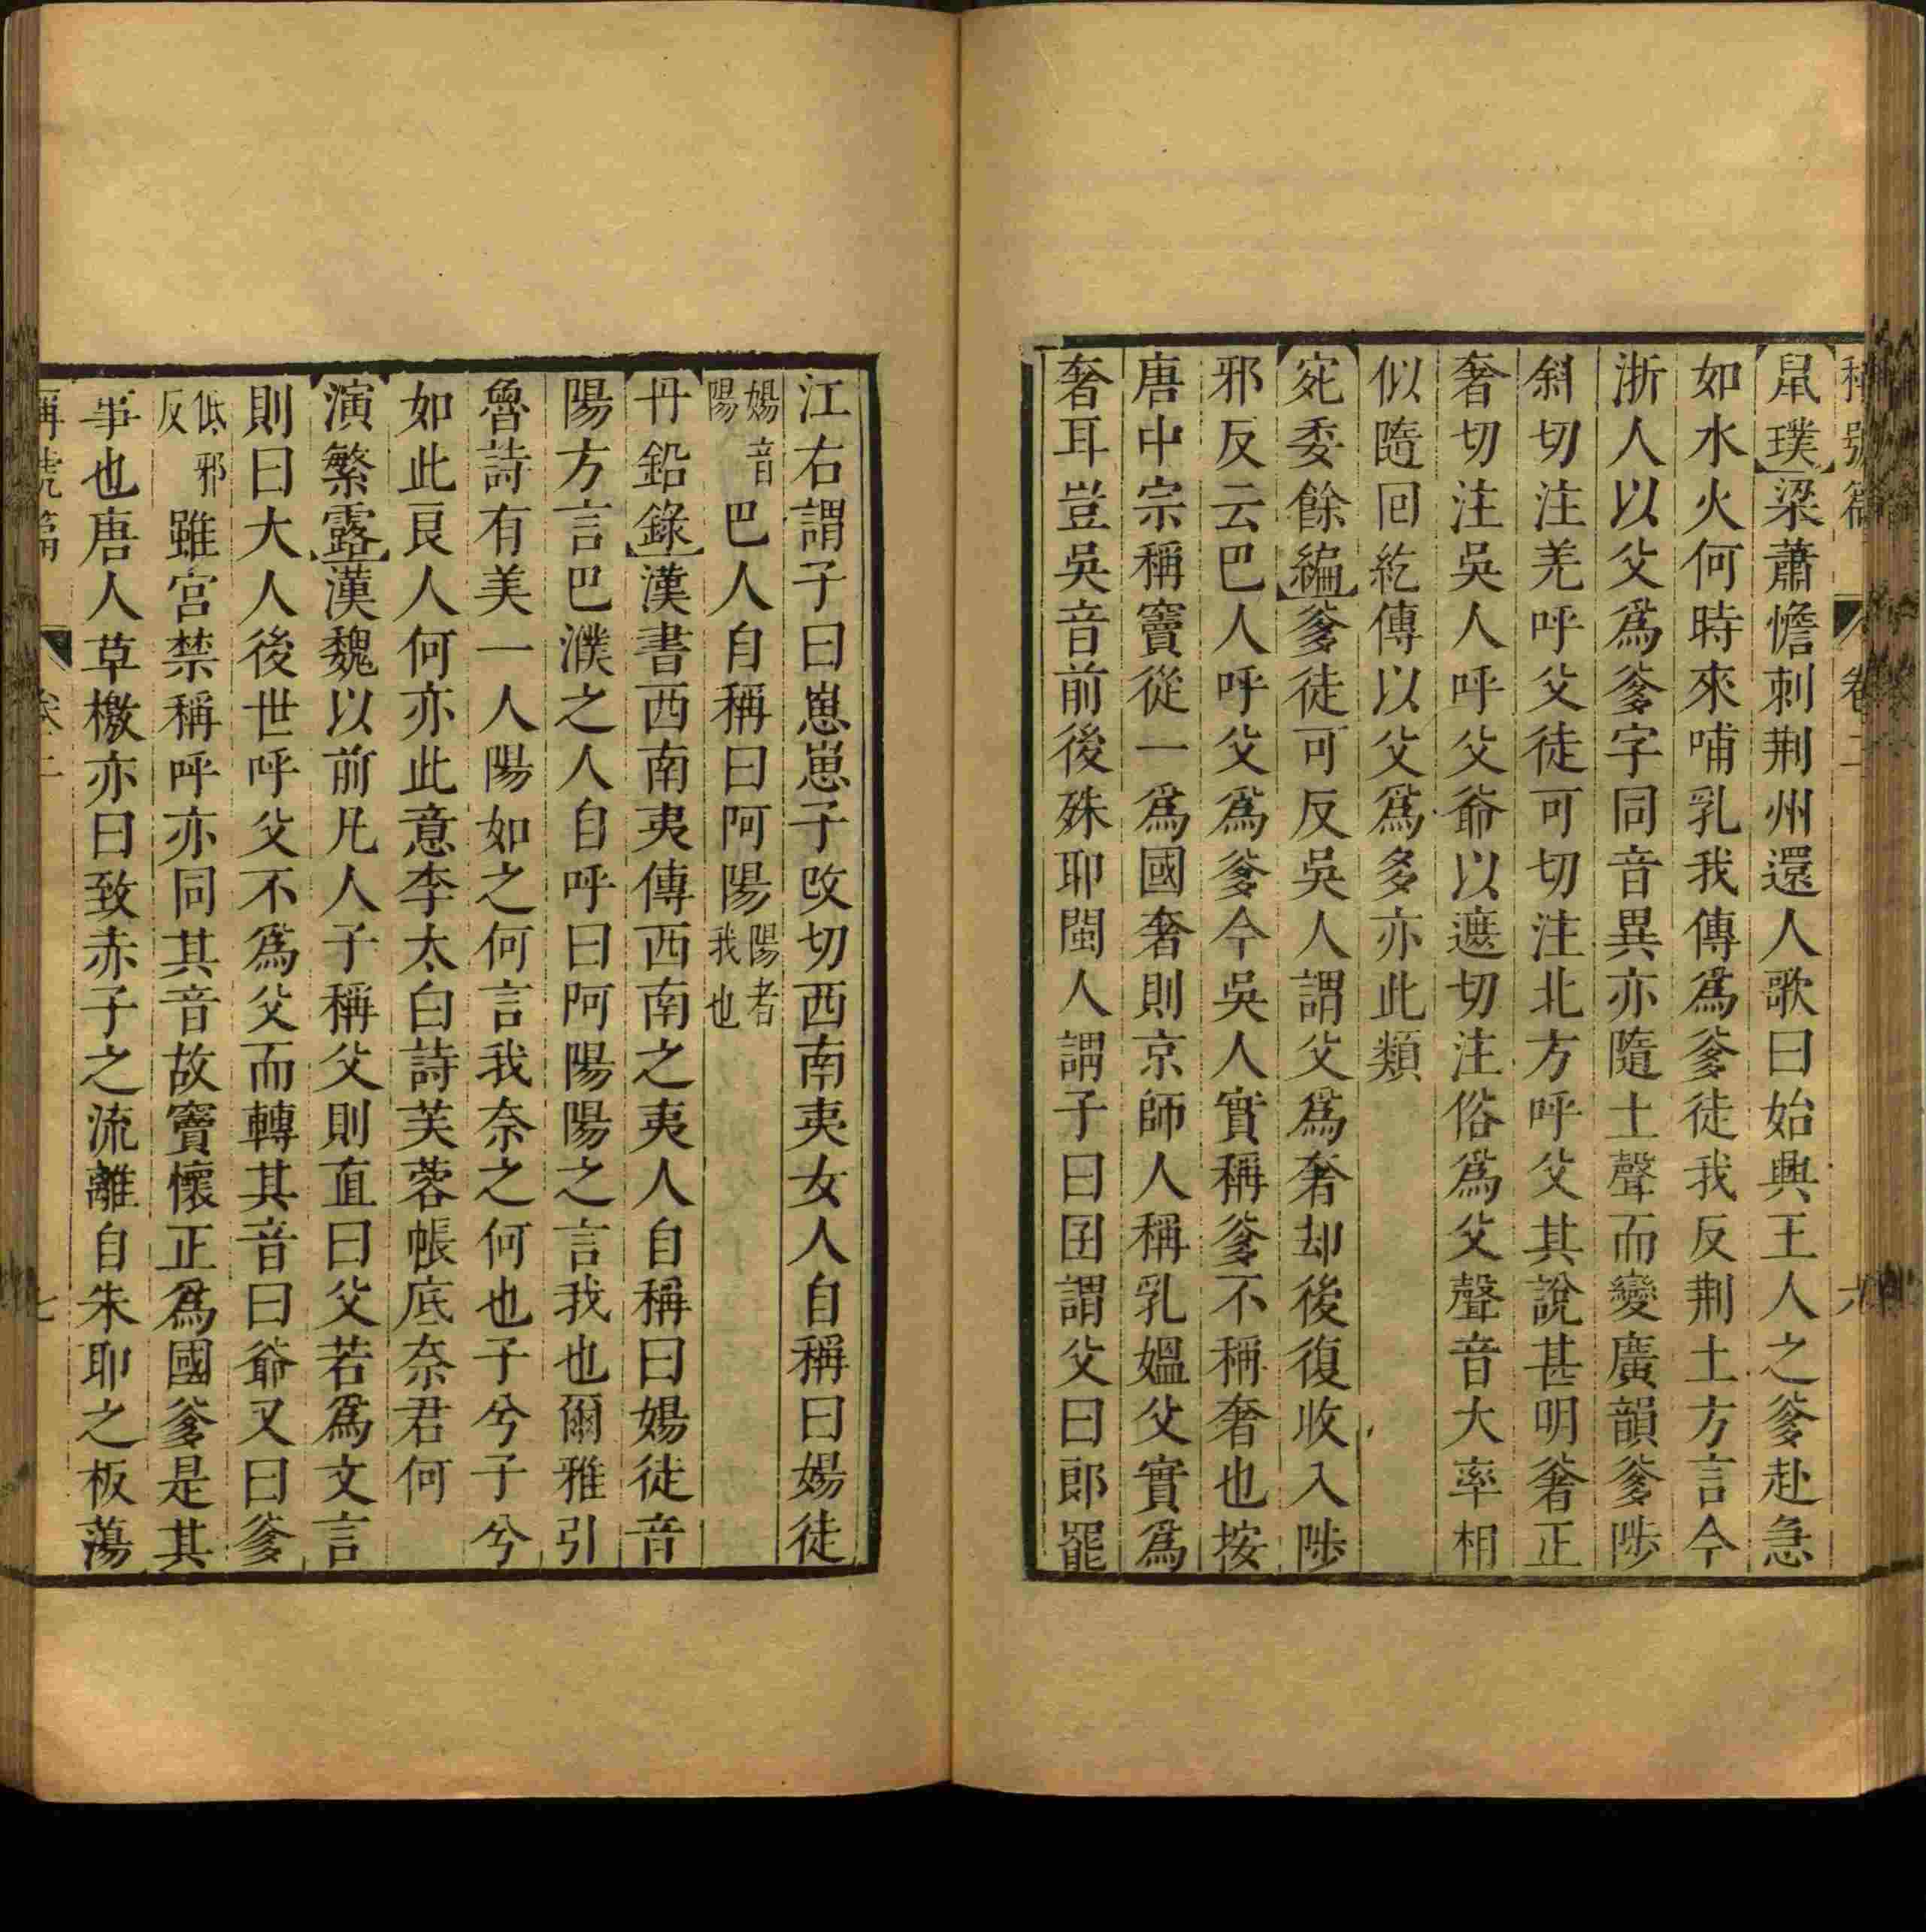 稱號篇 卷二 六
鼠璞梁蕭憺刺荆州還人歌曰始興王人之爹赴急
如水火何時來哺乳我傳爲爹徒我反荆土方言今
浙人以父爲爹字同音異亦隨土聲而變廣韻爹陟
斜切注羌呼父徒可切注北方呼父其說甚明奢正
奢切注吳人呼父爺以遮切注俗爲父聲音大率相
似隨回紇傳以父爲多亦此類
宛委餘編爹徒可反吳人謂父爲奢却後復收入陟
邪反云巴人呼父爲爹今吳人實稱爹不稱奢也按
唐中宗稱竇從一爲國奢則京師人稱乳媼父實爲
奢耳豈吳音前後殊耶閩人謂子曰囝謂父曰郎罷
江右謂子曰崽崽子改切西南夷女人自稱曰婸徒
婸音陽巴人自稱曰阿陽陽者我也
丹鉛錄漢書西南夷傳西南之夷人自稱曰婸徒音
陽方言巴濮之人自呼曰阿陽陽之言我也爾雅引
魯詩有美一人陽如之何言我奈之何也子兮子兮
如此良人何亦此意李太白詩芙蓉帳底奈君何
演繁露漢魏以前凡人子稱父則直曰父若爲文言
則曰大人後世呼父不爲父而轉其音曰爺又曰爹
低邪反雖宮禁稱呼亦同其音故竇懷正爲國爹是其
事也唐人草檄亦曰致赤子之流離自朱耶之板蕩
稱號篇 卷二 七